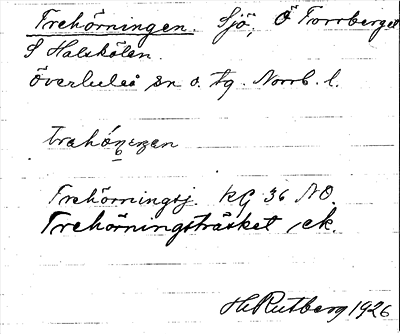 Trehörningen. Sjö, Ö Torrberget
S Halskölen.
Överluleå sn o. tg. Norrb. l.
Trehörningsj. KG 36 NO.
Trehörningsträsket, ek.
H Rutberg 1926